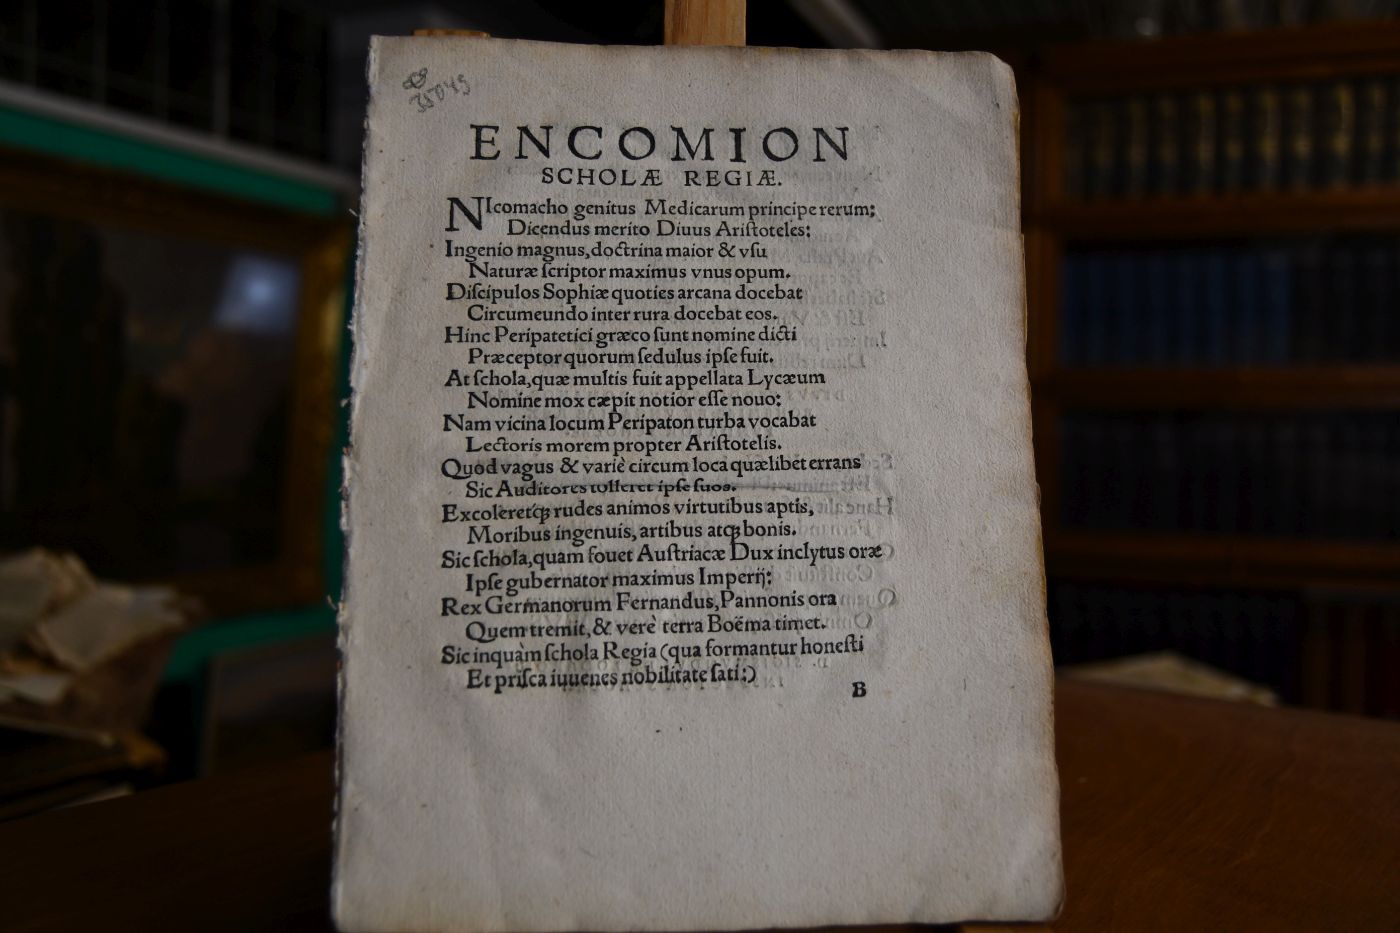 35049
ENCOMION
SCHOLÆ REGIÆ.
NIcomacho genitus Medicarum principe rerum;
Dicendus merito Diuus Ariſtoteles:
Ingenio magnus, doctrina maior & vſu
Naturæ ſcriptor maximus vnus opum.
Diſcipulos Sophiæ quoties arcana docebat
Circumeundo inter rura docebat eos.
Hinc Peripatetici græco ſunt nomine dicti
Præceptor quorum ſedulus ipſe fuit.
At ſchola, quæ multis fuit appellata Lycæum
Nomine mox cæpit notior eſſe nouo:
Nam vicina locum Peripaton turba vocabat
Lectoris morem propter Ariſtotelis.
Quod vagus & variè circum loca quælibet errans
Sic Auditores tolleret ipſe ſuos.
Excoleretq́ꝫ rudes animos virtutibus aptis,
Moribus ingenuis, artibus atqꝫ bonis.
Sic ſchola, quam fouet Auſtriacæ Dux inclytus oræ
Ipſe gubernator maximus Imperij:
Rex Germanorum Fernandus, Pannonis ora
Quem tremit, & verè terra Boëma timet.
Sic inquàm ſchola Regia (qua formantur honeſti
Et priſca iuuenes nobilitate ſati:)
B